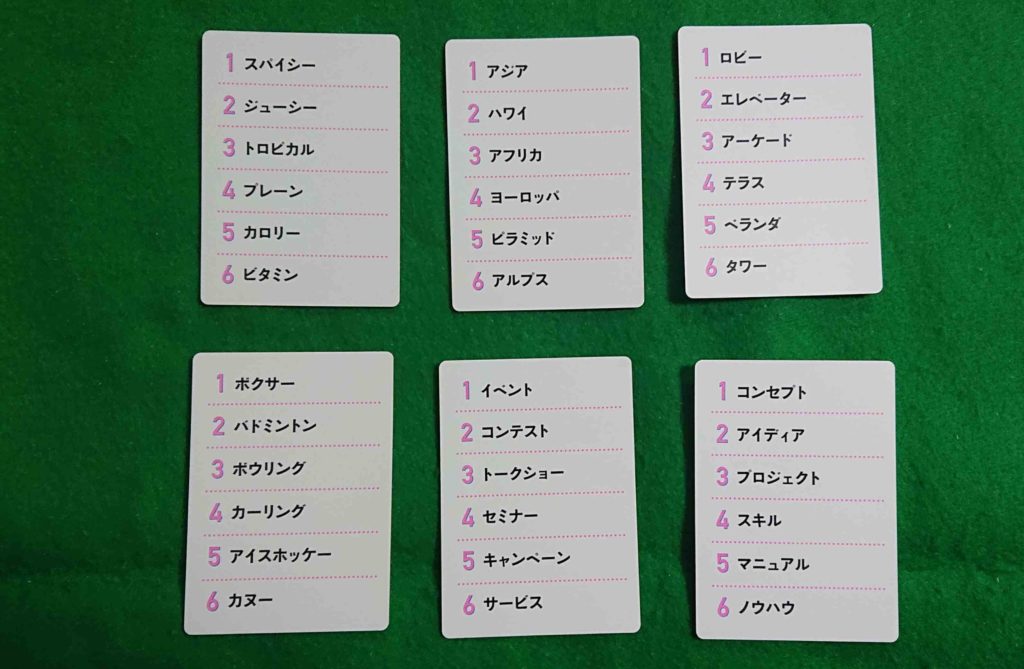 1 スパイシー
2 ジューシー
3 トロピカル
4 プレーン
5 カロリー
6 ビタミン
1 アジア
2 ハワイ
3 アフリカ
4 ヨーロッパ
5 ピラミッド
6 アルプス
1 ロビー
2 エレベーター
3 アーケード
4 テラス
5 ベランダ
6 タワー
1 ボクサー
2 バドミントン
3 ボウリング
4 カーリング
5 アイスホッケー
6 カヌー
1 イベント
2 コンテスト
3 トークショー
4 セミナー
5 キャンペーン
6 サービス
1 コンセプト
2 アイディア
3 プロジェクト
4 スキル
5 マニュアル
6 ノウハウ